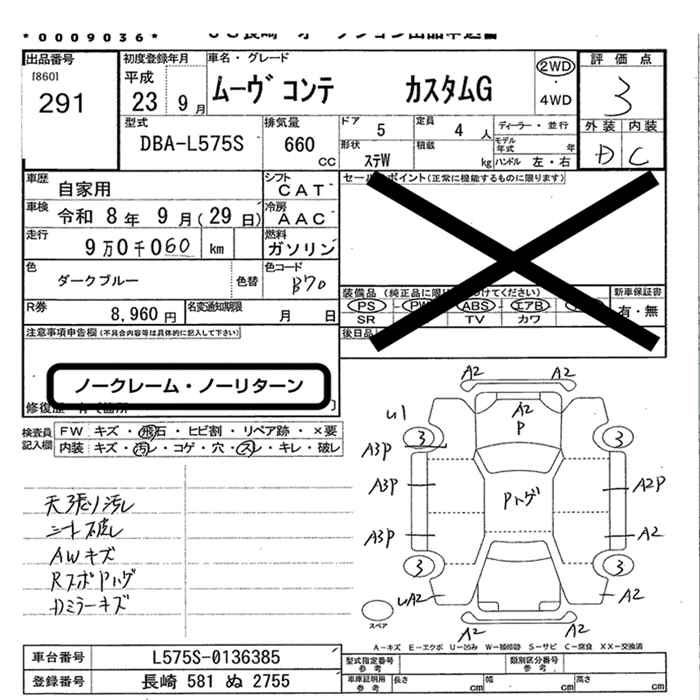 *0009036*
出品番号
[860]
291
初度登録年月
平成
23 9 月
車名・グレード
ムーヴ コンテ カスタムG
2WD
・
4WD
評価点
3
外装 内装
D C
型式
DBA-L575S
排気量
660
CC
ドア 5
定員 4 人
ディーラー・並行
モデル年式 年
形状 ステW
積載 kg
ハンドル 左・右
車歴
自家用
シフト
CAT
セールスポイント(正常に機能するものに限ります)
車検
令和 8 年 9 月(29 日)
冷房
AAC
走行
9万0千060 km
燃料
ガソリン
色
ダークブルー
色替
色コード
B70
装備品
PS PW ABS エアB
SR TV カワ
新車保証書
有・無
R券
8,960 円
名変通知期限
月 日
後日品
注意事項申告欄(不具合内容等は具体的に記入して下さい)
ノークレーム・ノーリターン
修復歴
検査員記入欄
FW キズ・飛石・ヒビ割・リペア跡・×要
内装 キズ・汚レ・コゲ・穴・スレ・キレ・破レ
天張り汚レ
シート破レ
AWキズ
RスポPハゲ
Dミラーキズ
A2 A2
U1
A2
P
3 3
A3P
A3P
Pハゲ
A2P
A3P
A2
3 3
UA2
A2
A2 A2
スペア
A-キズ E-エクボ U-凹み W-補修跡 S-サビ C-腐食 XX-交換済
車台番号
L575S-0136385
登録番号
長崎 581 ぬ 2755
型式指定番号
参考
類別区分番号
参考
車庫証明用
参考
長さ cm
幅 cm
高さ cm